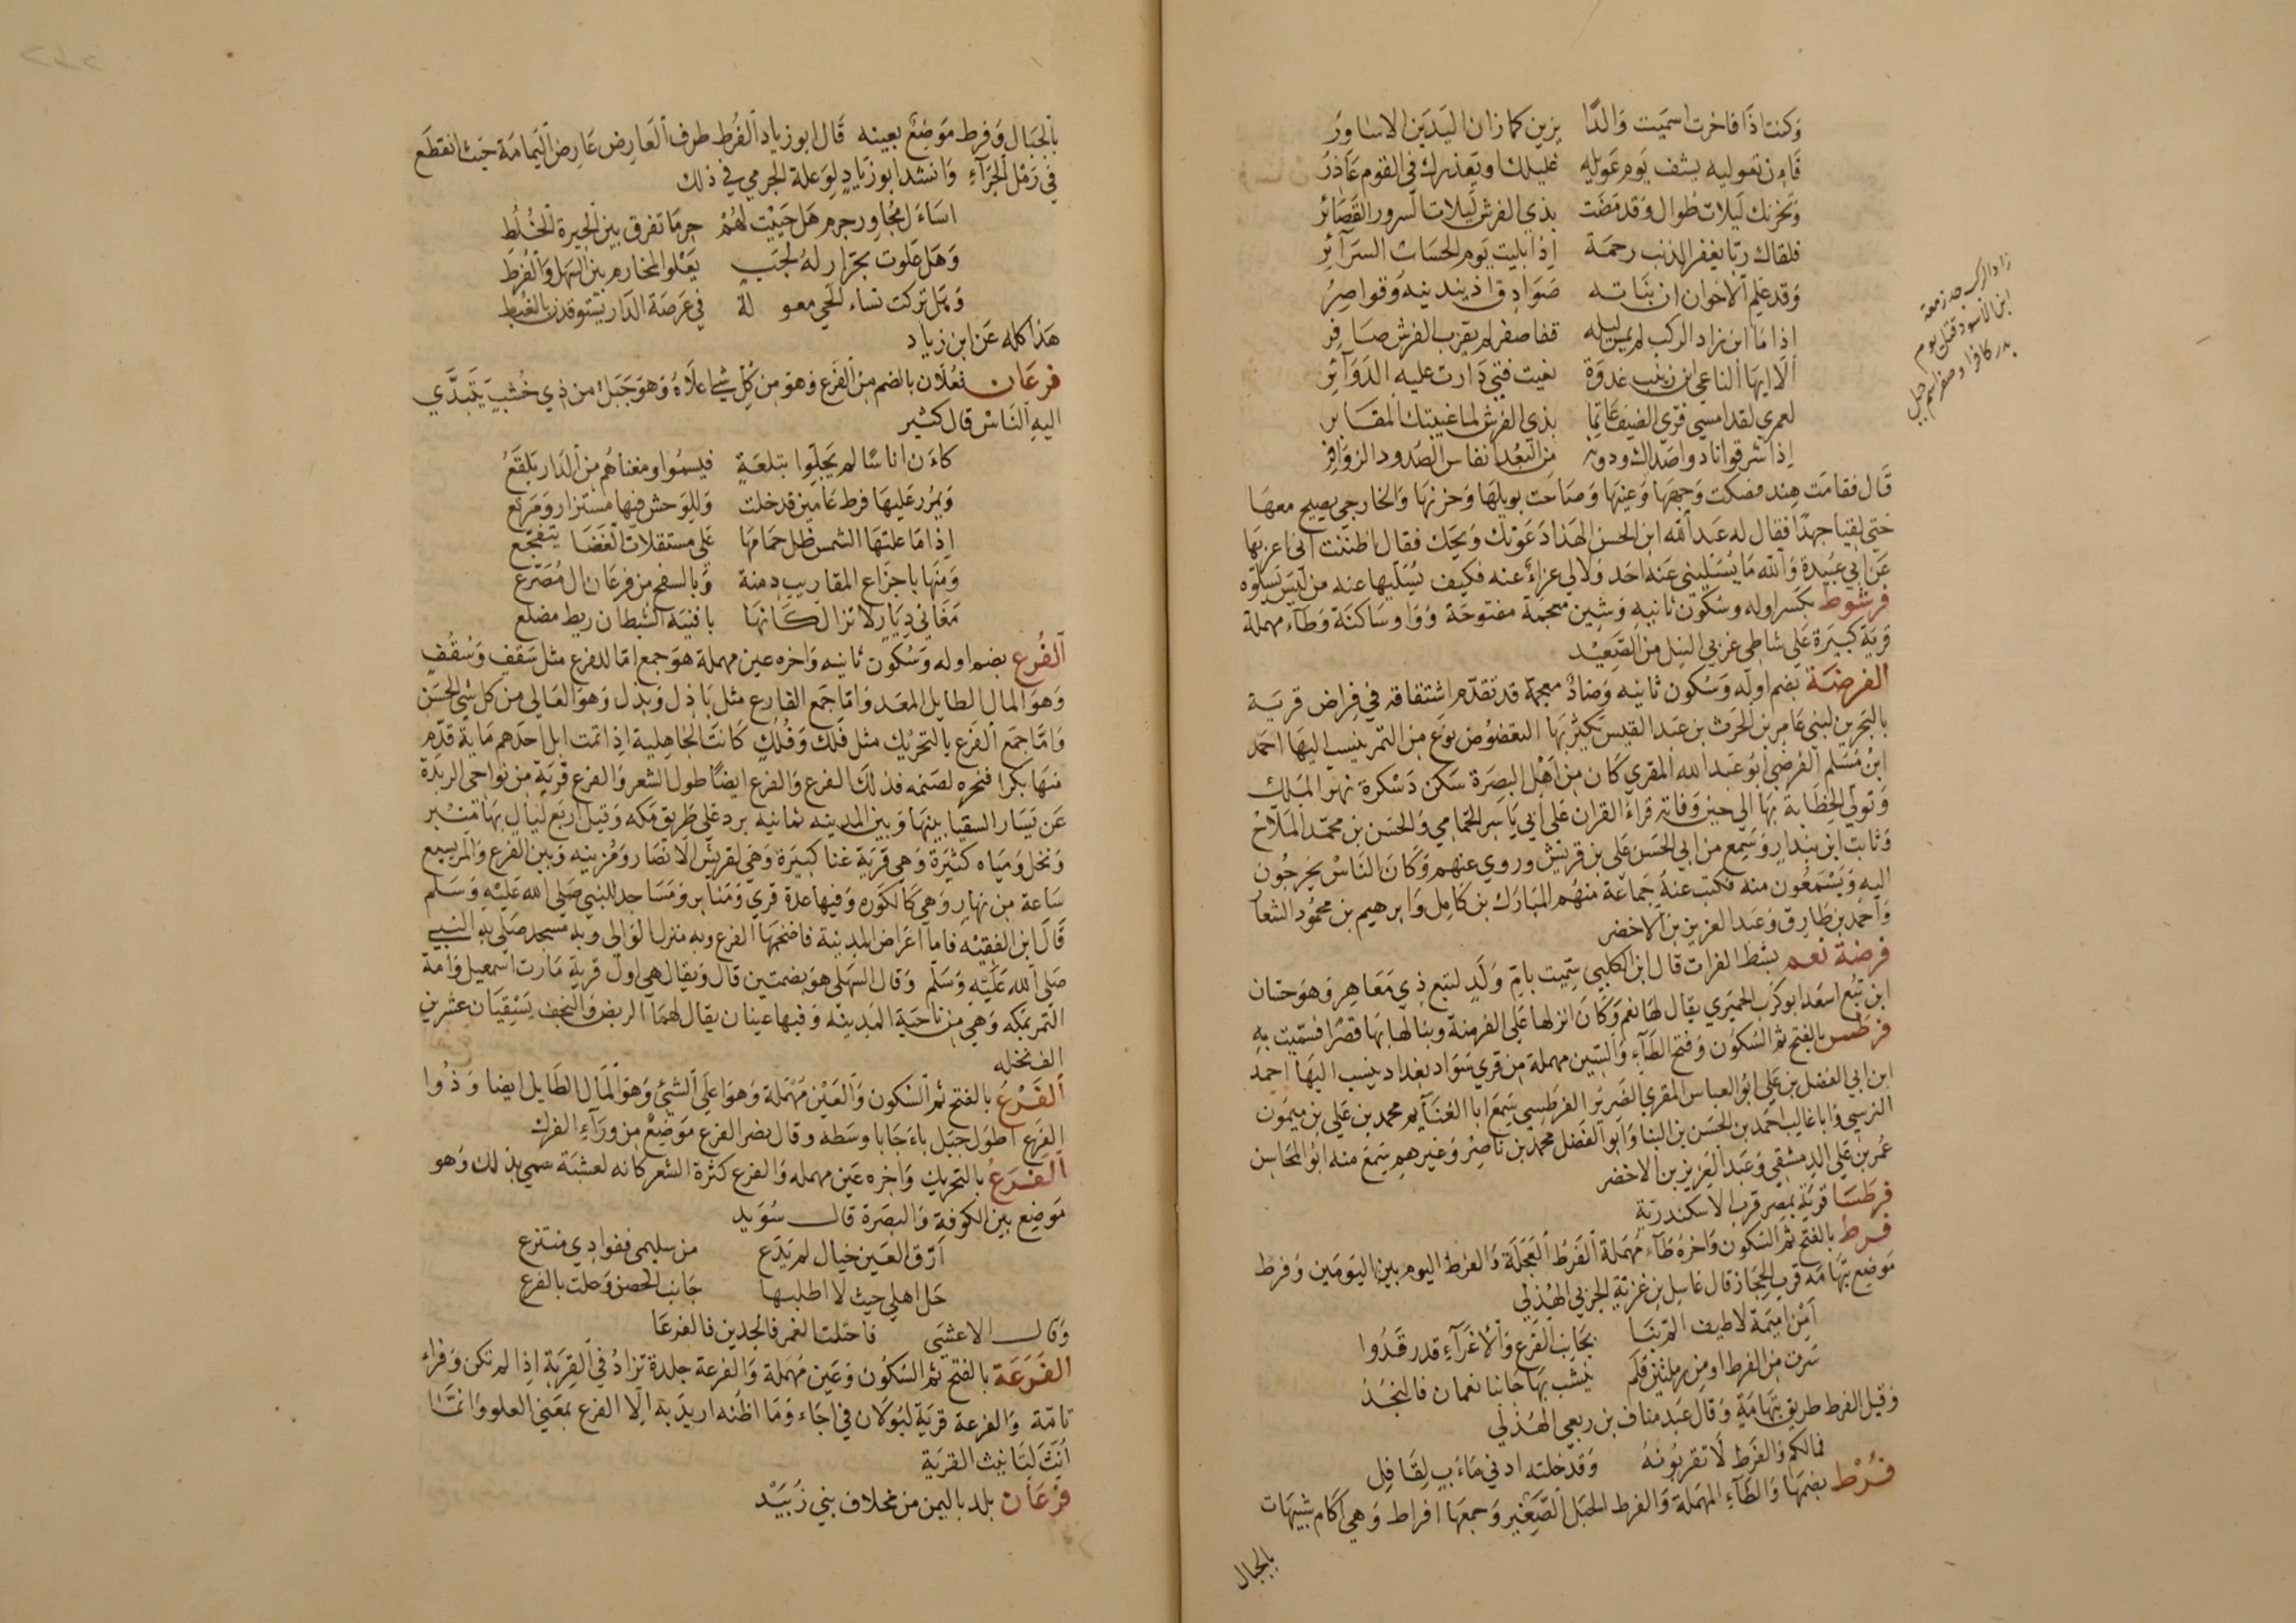 وكنت اذا فاخرت اسميت والدا يزين كما زان اليدين الاساور
فان تعوليه يشف يوم عويله غليلك او يعذرك في القوم عاذر
وتحزنك ليلات طوال وقد مضت بذي الفرش ليلات السرور القصائر
فلقاك ربا يغفر الذنب رحمة اذا بليت يوم الحساب السرائر
وقد علم الاخوان ان بناته صوادق اذ يندبنه وقواصر
اذا ما ابن زاد الركب لم يمس ليله قفا صفر لم يقرب الفرش صافر
الا ايها الناعي ابن زينب غدوة نعيت فتى دارت عليه الدوائر
لعمري لقد امسى قرى الضيف عاتما بذي الفرش لما غيبتك المقابر
اذا شرقوا نادوا صداك ودونه من البعد انفاس الصدور الزوافر
زاد الركب جد زمعة
ابن الاسود قتل يوم
بدر كافرا وصفر اسم جبل
قال فقامت هند فصكت وجهها وعينها وصاحت بويلها وحزنها والخارجي يصيح معها
حتى لقيا جهدا فقال له عبد الله ابن الحسن الهذا دعوتك ويحك فقال اظننت اني اعزيها
عن ابي عبيدة والله ما يسليني عنه احد ولا لي عزاء عنه فكيف يسليها عنه من ليس يسلوه
فرشوط بكسر اوله وسكون ثانيه وشين معجمة مفتوحة وواو ساكنة وطاء مهملة
قرية كبيرة على شاطي غربي النيل من الصعيد
الفرضة بضم اوله وسكون ثانيه وضاد معجمة قد تقدم اشتقاقه في فراض قرية
بالبحرين لبني عامر بن الحرث بن عبد القيس يكثر بها التعضوض نوع من التمر ينسب اليها احمد
ابن مسلم الفرضي ابو عبد الله المقري كان من اهل البصرة سكن دسكرة نهر الملك
وتولي الخطابة بها الي حين وفاته قراء القران على ابي ياسر الحمامي والحسن بن محمد الملاح
وثابت ابن بندار وسمع من ابي الحسن علي بن قريش وروي عنهم وكان الناس يخرجون
اليه ويستمعون منه فكتب عنه جماعة منهم المبارك بن كامل وابرهيم بن محمود الشعار
واحمد بن طارق وعبد العزيز بن الاخضر
فرضة نعم بشط الفرات قال ابن الكلبي سميت بام ولد لتبع ذي معاهر وهو حسان
ابن تبع اسعد ابو كرب الحميري يقال لها نعم وكان انزلها على الفرضة وبنا لها بها قصرا فسميت به
فرطس بالفتح ثم السكون وفتح الطاء والسين مهملة من قري سواد بغداد ينسب اليها احمد
ابن ابي الفضل بن علي ابو العباس المقري الضرير الفرطسي سمع ابا الغنايم محمد بن علي بن ميمون
النرسي وابا غالب احمد بن الحسن بن البنا وابو الفضل محمد بن ناصر وغيرهم سمع منه ابو المحاسن
عمر بن علي الدمشقي وعبد العزيز بن الاخضر
فرطسا قرية بمصر قرب الاسكندرية
فرط بالفتح ثم السكون واخره طاء مهملة الفرط العجلة والفرط اليوم بين اليومين وفرط
موضع بتهامه قرب الحجاز قال غاسل بن غزية الجربي الهذلي
امن اميمة لا طيف الم بنا بجانب الفرع والاغراء قد رقدوا
سرت من الفرط او من رملتين فلم ينشب بها جانبا نعمان فالنجد
وقيل الفرط طريق بتهامة وقال عبد مناف بن ربعي الهذلي
فمالكم والفرط لا تقربونه وقد خلته ادني ماءب لقافل
فرط بضمها والطاء المهملة والفرط الجبل الصغير وجمعها افراط وهي اكام شبيهات
بالجبال
بالجبال وفرط موضع بعينه قال ابو زياد الفرط طرف العارض عارض اليمامة حيث انقطع
في رمل الجزاء وانشد ابو زياد لوعلة الجرمي في ذلك
اساءل مجاور جرم هل جنيت لهم جرما تفرق بين الجيرة الخلط
وهل علوت بجرار له لجب يعلوا المخارم بين السهل والفرط
وهل تركت نساء الحي معولة في عرصة الدار يستوقدن بالغبط
هذا كله عن ابن زياد
فرعان فعلان بالضم من الفرع وهو من كل شي اعلاه وهو جبل من ذي خشب يتبدي
اليه الناس قال كثير
كاءن اناسا لم يحلوا بتلعة فيسموا ومغناهم من الدار بلقع
ويمرر عليها فرط عامين قد خلت وللوحش فيها مستزار ومربع
اذا ما علتها الشمس ظل حمامها على مستقلات الغضا يتفجع
ومنها باجزاع المقاريب دمنة وبالسفح من فرعان ال مصرع
مغاني ديار لا تزال كانها بافنية الشطان ريط مضلع
الفرع بضم اوله وسكون ثانيه واخره عين مهملة هو جمع اما لفرع مثل سقف وسقف
وهو المال الطايل المعد واما جمع الفارع مثل باذل وبذل وهو العالي من كل شي الحسن
واما جمع الفرع بالتحريك مثل فلك وفلك كانت الجاهلية اذا تمت ابل احدهم ماية قدم
منها بكرا فنحره لصنمه فذلك الفرع والفرع ايضا طول الشعر والفرع قرية من نواحي الربذة
عن يسار السقيا بينها وبين المدينه ثمانيه برد على طريق مكه وقيل اربع ليال بها منبر
ونخل ومياه كثيرة وهي قرية غنا كبيرة وهي لقريش الانصار ومزينه وبين الفرع والمريسيع
ساعة من نهار وهي كالكوره وفيها عدة قري ومنابر ومساجد للنبي صلى الله عليه وسلم
قال ابن الفقيه فاما اعراض المدينة فاضخمها الفرع وبه منزل الوالي وبه مسجد صلى به النبي
صلى الله عليه وسلم وقال السهلي هو بضمتين قال ويقال هي اول قرية مارت اسمعيل وامه
التمر بمكه وهي من ناحية المدينه وفيها عينان يقال لهما الربض والنجف يسقيان عشرين
الف نخله
الفرع بالفتح ثم السكون والعين مهملة وهو اعلى الشئ وهو المال الطايل ايضا وذوا
الفرع اطول جبل باءجا باوسطه وقال نصر الفرع موضع من وراء الفرك
الفرع بالتحريك واخره عين مهمله والفرع كثرة الشعر كانه لعشبة سمي بذلك وهو
موضع بين الكوفة والبصرة قال سويد
ارق العين خيال لم يدع من سليمى ففوادي منتزع
حل اهلي حيث لا اطلبها جانب الحصن وحلت بالفرع
وقال الاعشى فاحتلت الغمر فالجدين فالفرعا
الفرعة بالفتح ثم السكون وعين مهملة والفرعة جلدة تزاد في القربة اذا لم تكن وفراء
تامة والفرعة قرية لبولان في اجاء وما اظنه اريد به الا الفرع بمعني العلو وانما
انث لتانيث القرية
فرعان بلد باليمن من مخلاف بني زبيد